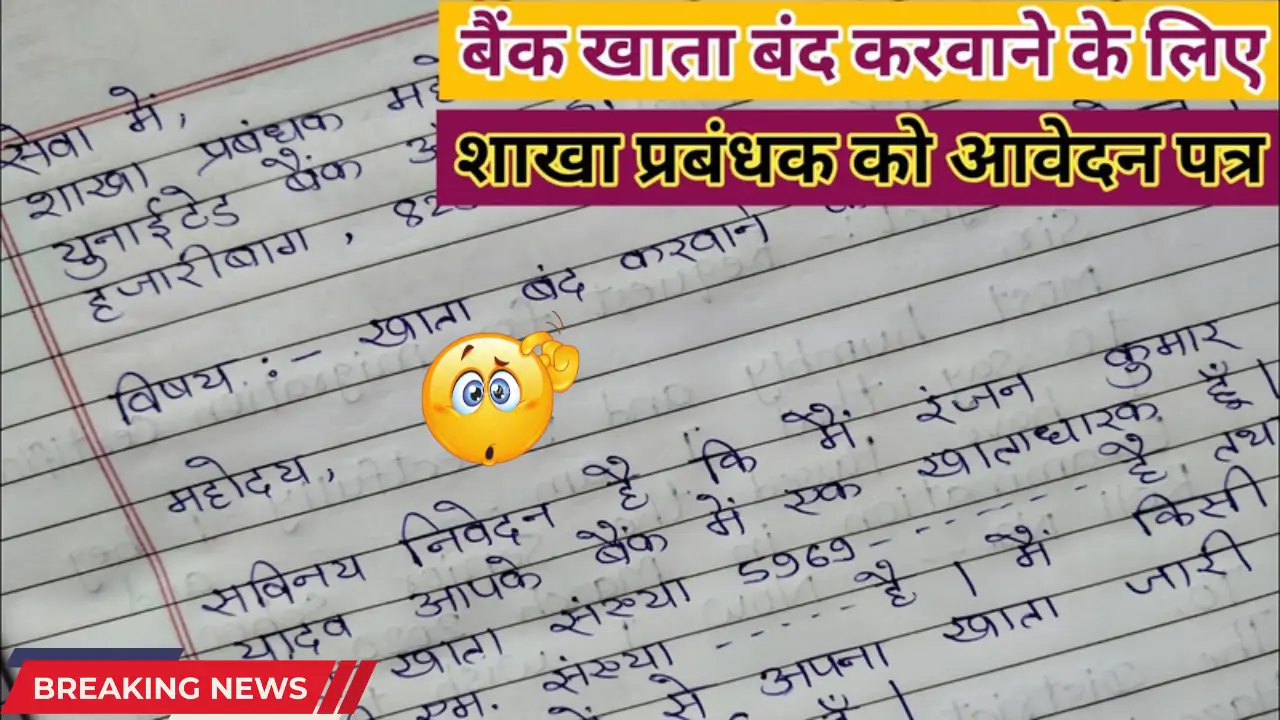 बैंक खाता बंद करवाने के लिए
शाखा प्रबंधक को आवेदन पत्र
सेवा में,
शाखा प्रबंधक
युनाईटेड बैंक
हजारीबाग,
विषय :- खाता बंद करवाने
महोदय,
सविनय निवेदन है कि मैं रंजन कुमार
यादव आपके बैंक में एक खाताधारक हूँ।
खाता संख्या 5969------- है तथ
एम. संख्या ------ है। मैं किसी
से अपना खाता जारी
BREAKING NEWS